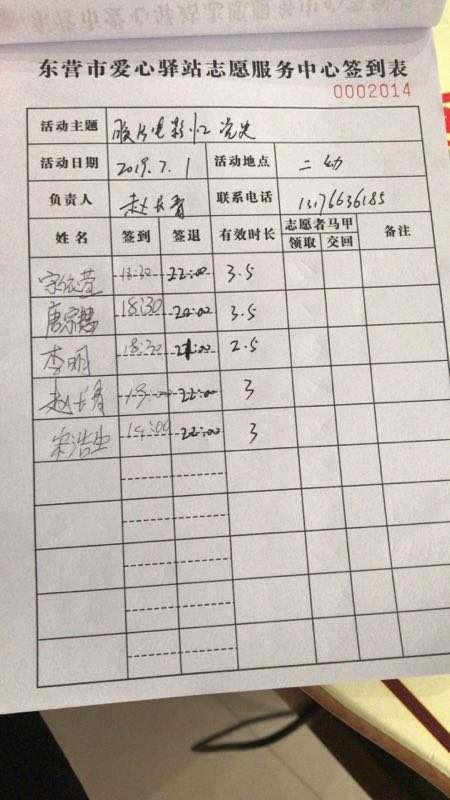 东营市爱心驿站志愿服务中心签到表
0002014
活动主题 胶片电影忆党史
活动日期 2019.7.1 活动地点 二幼
负责人 赵长青 联系电话 13176636185
姓名 签到 签退 有效时长 志愿者马甲 备注
领取 交回
18:30 22:00 3.5
18:30 22:00 3.5
李明 18:30 21:00 2.5
赵长青 19:00 22:00 3
宋浩 19:00 22:00 3